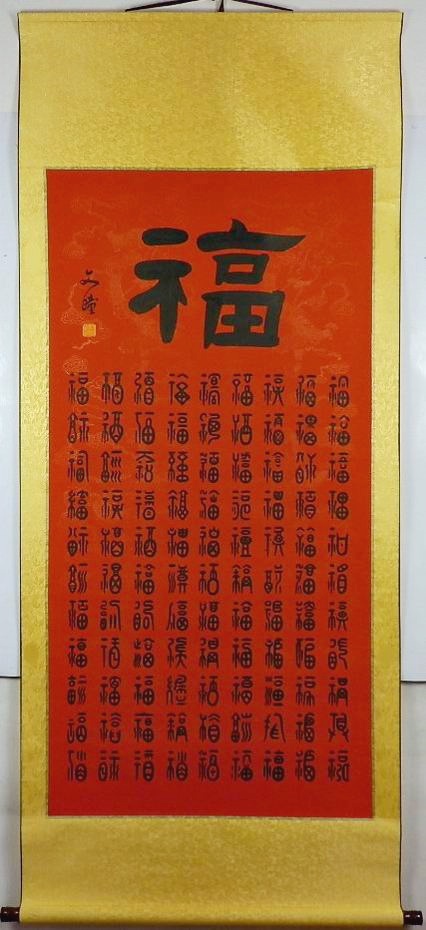 福
文
福福福福福福福福福
福福福福福福福福福
福福福福福福福福福
福福福福福福福福福
福福福福福福福福福
福福福福福福福福福
福福福福福福福福福
福福福福福福福福福
福福福福福福福福福
福福福福福福福福福
福福福福福福福福福